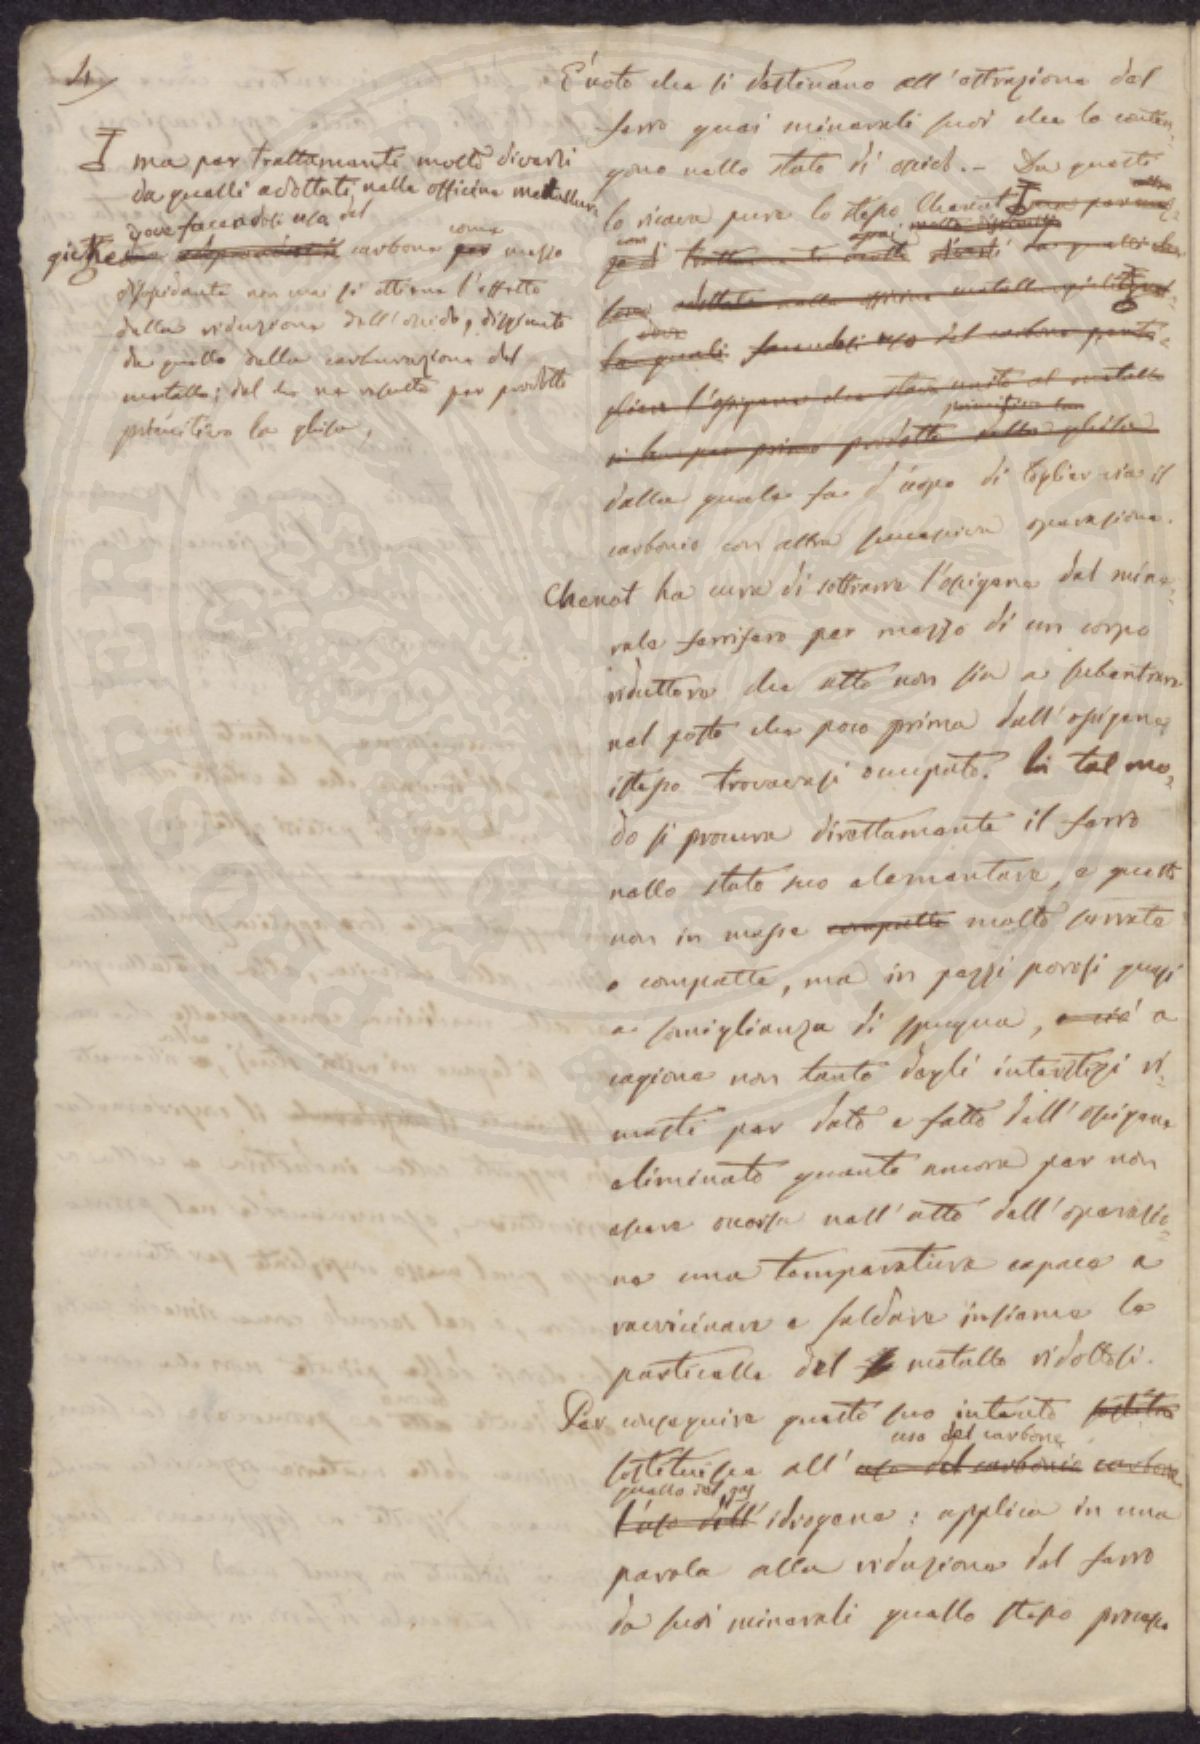 4/
I ma per trattamenti molto diversi
da quelli adottati nelle officine metallur
giche dove facendosi uso del
carbone come per mezzo
ossidante non mai si ottiene l'effetto
della riduzione dell'ossido, disgiunto
da quello della carburazione del
metallo; dal che ne risulta per prodotto
primitivo la ghisa,
È noto che si destinano all'estrazione del
ferro quei minerali suoi che lo conten-
gono nello stato di ossido. – Da questi
lo ricava pure lo stesso Chenot I
trattamenti molto diversi da quelli
adottati nelle officine metallurgiche
dove
le quali facendosi uso del carbone
gliere l'ossigene che stava unito al metallo
primitivo
per primo prodotto della ghisa
dalla quale fa d'uopo di toglier via il
carbonio con altra successiva operazione.
Chenot ha cura di sottrarre l'ossigene dal mine-
rale ferrifero per mezzo di un corpo
riduttore che atto non sia a subentrare
nel posto che poco prima dall'ossigene
istesso trovavasi occupato. In tal mo-
do si procura direttamente il ferro
nello stato suo elementare, e questo
non in masse compatte molto serrate
e compatte, ma in pezzi porosi quasi
a somiglianza di spugna, e ciò a
cagione non tanto degli interstizi ri-
masti per dato e fatto dell'ossigene
eliminato quanto ancora per non
essere occorsa nell'atto dell'operazio-
ne una temperatura capace a
ravvicinare e saldare insieme le
particelle del metallo ridottosi.
Per conseguire questo suo intento
uso del carbone
sostituisce all' uso del carbonio carbone
quello del gas
l'uso dell' idrogene: applica in una
parola alla riduzione del ferro
da suoi minerali quello stesso processo